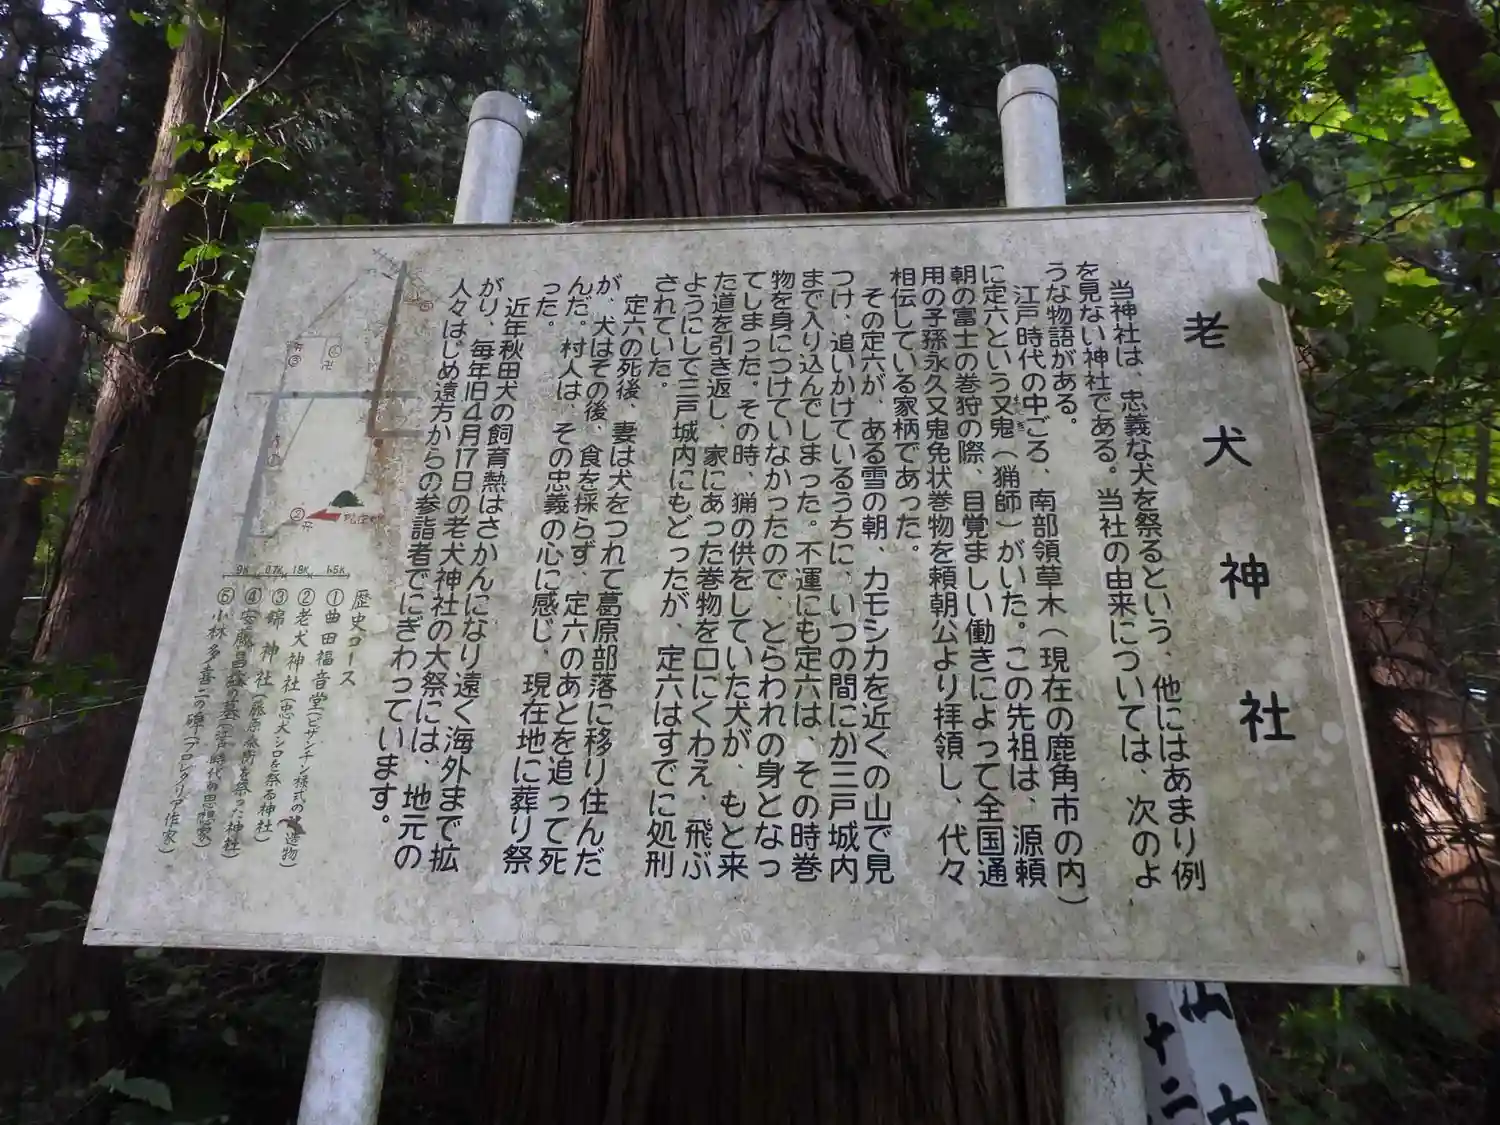 老犬神社
当神社は、忠義な犬を祭るという、他にはあまり例
を見ない神社である。当社の由来については、次のよ
うな物語がある。
江戸時代の中ごろ、南部領草木（現在の鹿角市の内）
に定六という又鬼（猟師）がいた。この先祖は、源頼
朝の富士の巻狩の際、目覚ましい働きによって全国通
用の子孫永久又鬼免状巻物を頼朝公より拝領し、代々
相伝している家柄であった。
その定六が、ある雪の朝、カモシカを近くの山で見
つけ、追いかけているうちに、いつの間にか三戸城内
まで入り込んでしまった。不運にも定六は、その時巻
物を身につけていなかったので、とらわれの身となっ
てしまった。その時、猟の供をしていた犬が、もと来
た道を引き返し、家にあった巻物を口にくわえ、飛ぶ
ようにして三戸城内にもどったが、定六はすでに処刑
されていた。
定六の死後、妻は犬をつれて葛原部落に移り住んだ
が、犬はその後、食を採らず、定六のあとを追って死
んだ。村人は、その忠義の心に感じ、現在地に葬り祭
った。
近年秋田犬の飼育熱はさかんになり遠く海外まで拡
がり、毎年旧4月17日の老犬神社の大祭には、地元の
人々はじめ遠方からの参詣者でにぎわっています。
歴史コース
①曲田福音堂（ビザンチン様式の建造物）
②老犬神社（忠犬シロを祭る神社）
③錦神社（藤原泰衡を祭った神社）
④安藤昌益の墓（江戸時代の思想家）
⑤小林多喜二の碑（プロレタリア作家）
9K 0.7K 1.8K 1.5K
②
③
④
現在地
十二